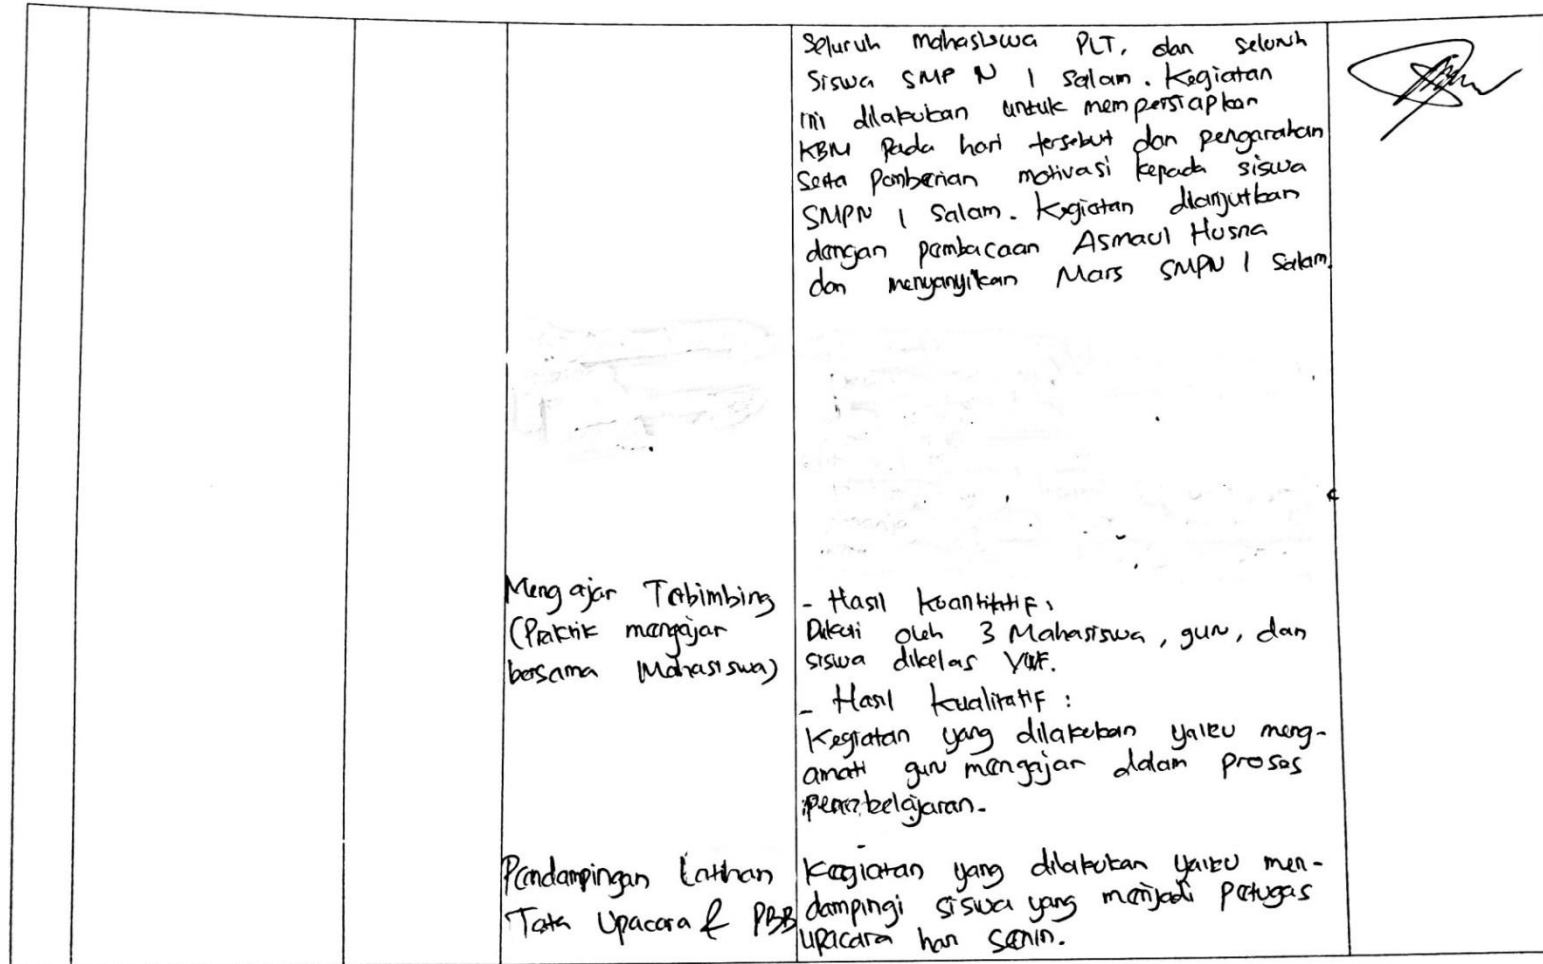 Seluruh mahasiswa PLT, dan seluruh
Siswa SMP N 1 Salam. Kegiatan
ini dilakukan untuk mempersiapkan
KBM pada hari tersebut dan pengarahan
Serta pemberian motivasi kepada siswa
SMPN 1 Salam. Kegiatan dilanjutkan
dengan pembacaan Asmaul Husna
dan menyanyikan Mars SMPN 1 Salam.
Mengajar Terbimbing
(Praktik mengajar
bersama Mahasiswa)
- Hasil kuantitatif:
Diikuti oleh 3 Mahasiswa, guru, dan
siswa dikelas
- Hasil kualitatif:
Kegiatan yang dilakukan yaitu meng-
amati guru mengajar dalam proses
pembelajaran.
Pendampingan Latihan
Tata Upacara & PBB
Kegiatan yang dilakukan yaitu men-
dampingi siswa yang menjadi petugas
upacara hari senin.